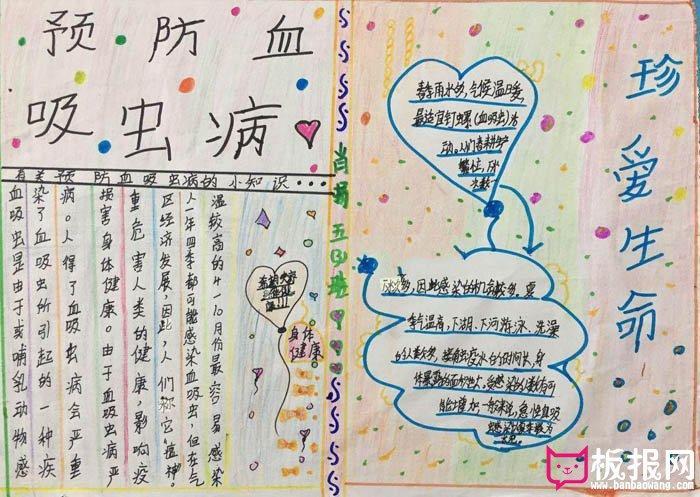 预防血
吸虫病
有关预防血吸虫病的小知识...
血吸虫是由于或哺乳动物感
染了血吸虫所引起的一种疾
病。人得了血吸虫病会严重
损害身体健康。由于血吸虫病严
重危害人类的健康,影响疫
区经济发展,因此,人们称它"瘟神"。
人一年四季都可能感染血吸虫,但在气
温较高的4-10月份最容易感染
身体
健康
五(3)班
春季雨水多,气候温暖,
最适宜钉螺(血吸虫)活
动。人们春耕生产
繁忙,下水
次数
多,因此感染的机会较多。夏
季气温高,下湖、下河游泳、洗澡
的人数多,接触疫水的时间长,身
体暴露的面积大,感染的人数有可
能增加。一般来说,急性血吸
较为
珍爱生命
板报网
www.banbaowang.com